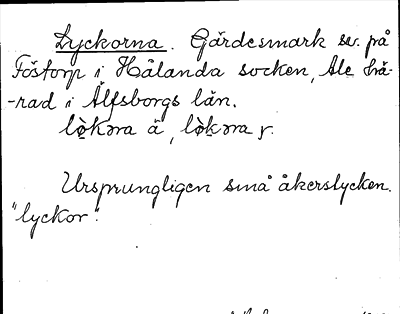 Lyckorna. Gärdesmark sv. på
Föstorp i Hålanda socken, Ale hä-
-rad i Älfsborgs län.
Ursprungligen små åkerstycken.
"lyckor".